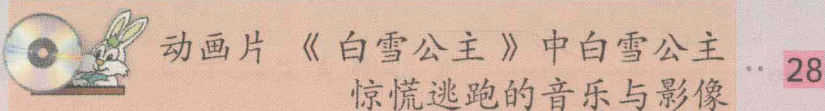 动画片《白雪公主》中白雪公主 ·· 28
惊慌逃跑的音乐与影像